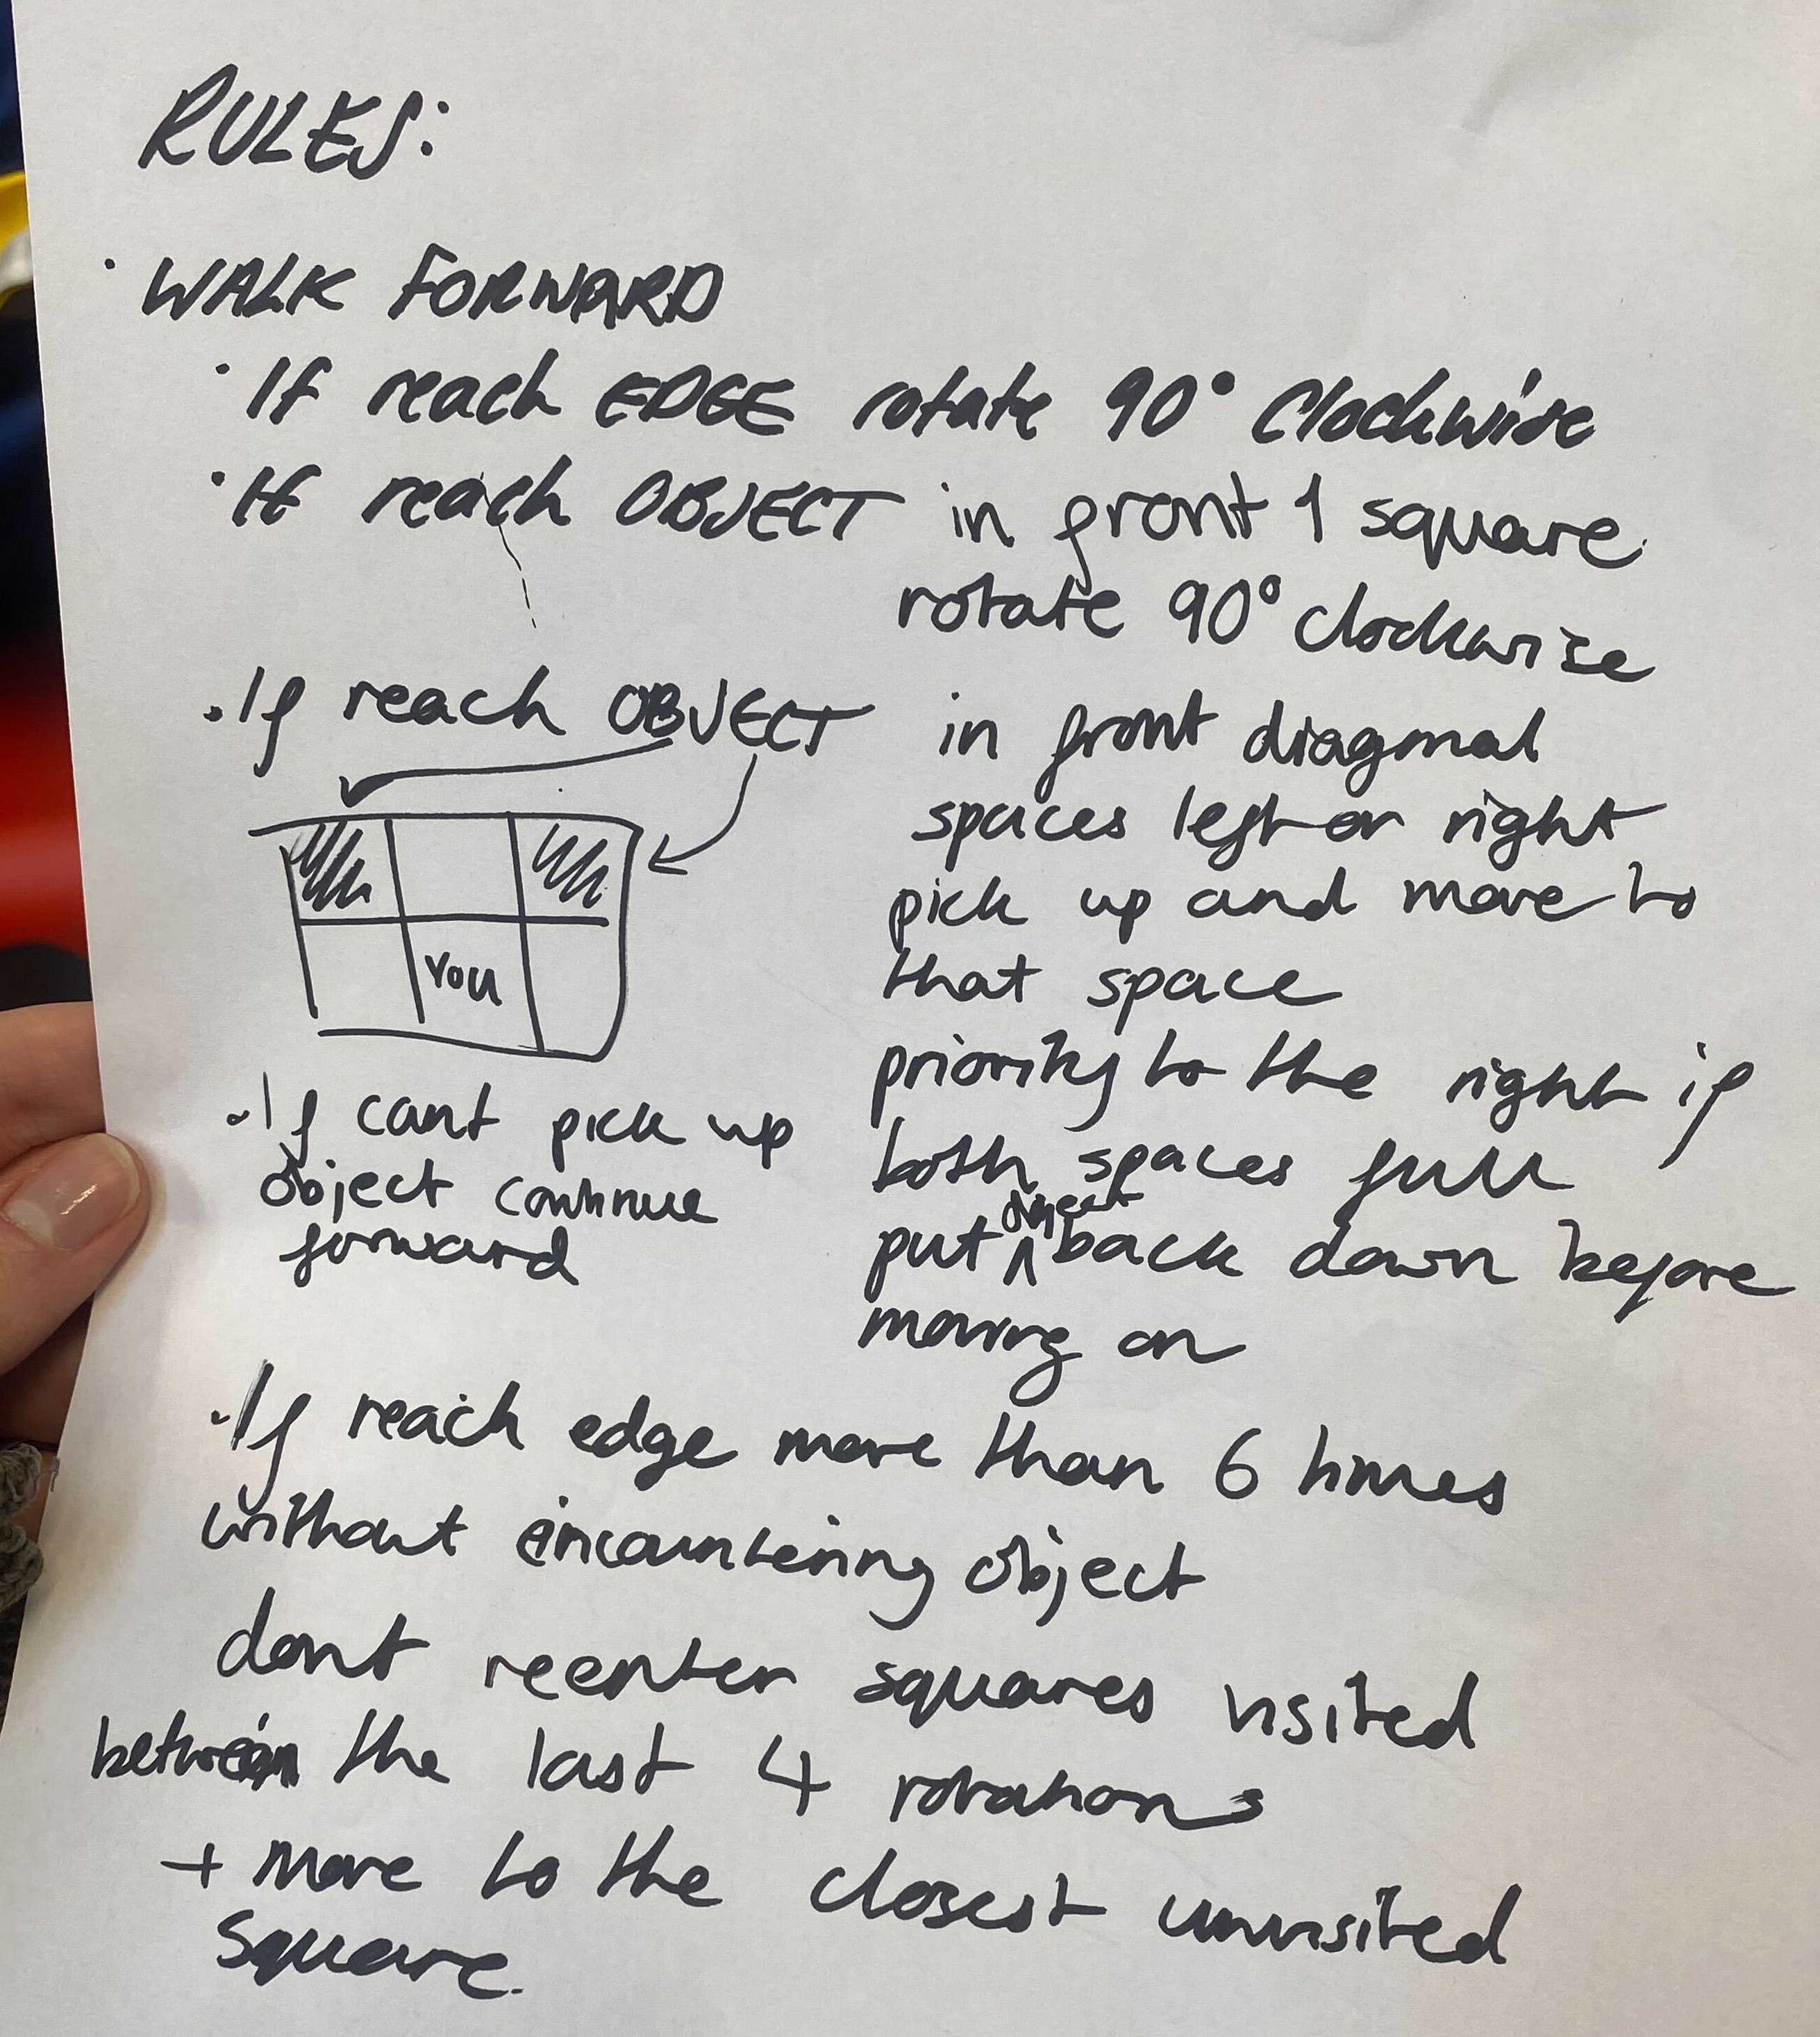 RULES:
· WALK FORWARD
· If reach EDGE rotate 90° Clockwise
· If reach OBJECT in front 1 square
rotate 90° clockwise
· If reach OBJECT in front diagonal
spaces left or right
pick up and move to
that space
priority to the right if
both spaces full
put object back down before
moving on
You
· If cant pick up
object continue
forward
· If reach edge more than 6 times
without encountering object
dont reenter squares visited
between the last 4 rotations
+ move to the closest unvisited
square.